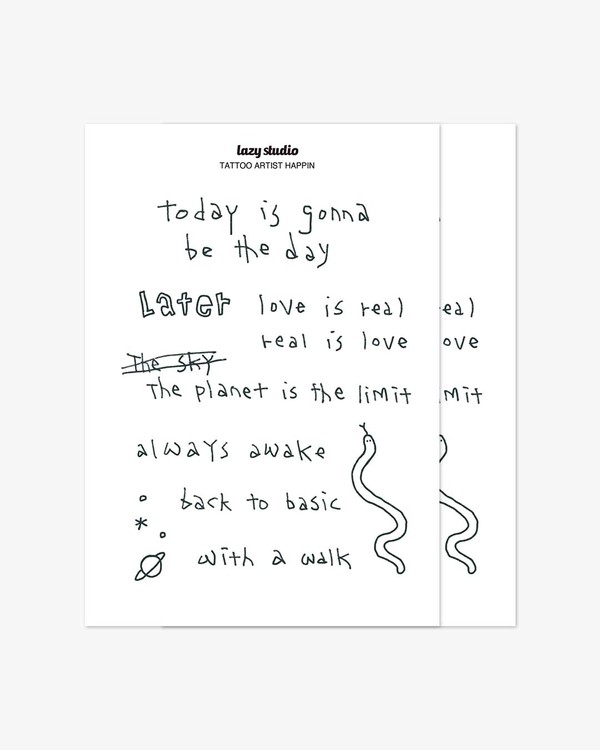 lazy studio
TATTOO ARTIST HAPPIN
today is gonna
be the day
Later
love is real
real is love
The sky
The planet is the limit
always awake
back to basic
with a walk
eal
ove
mit